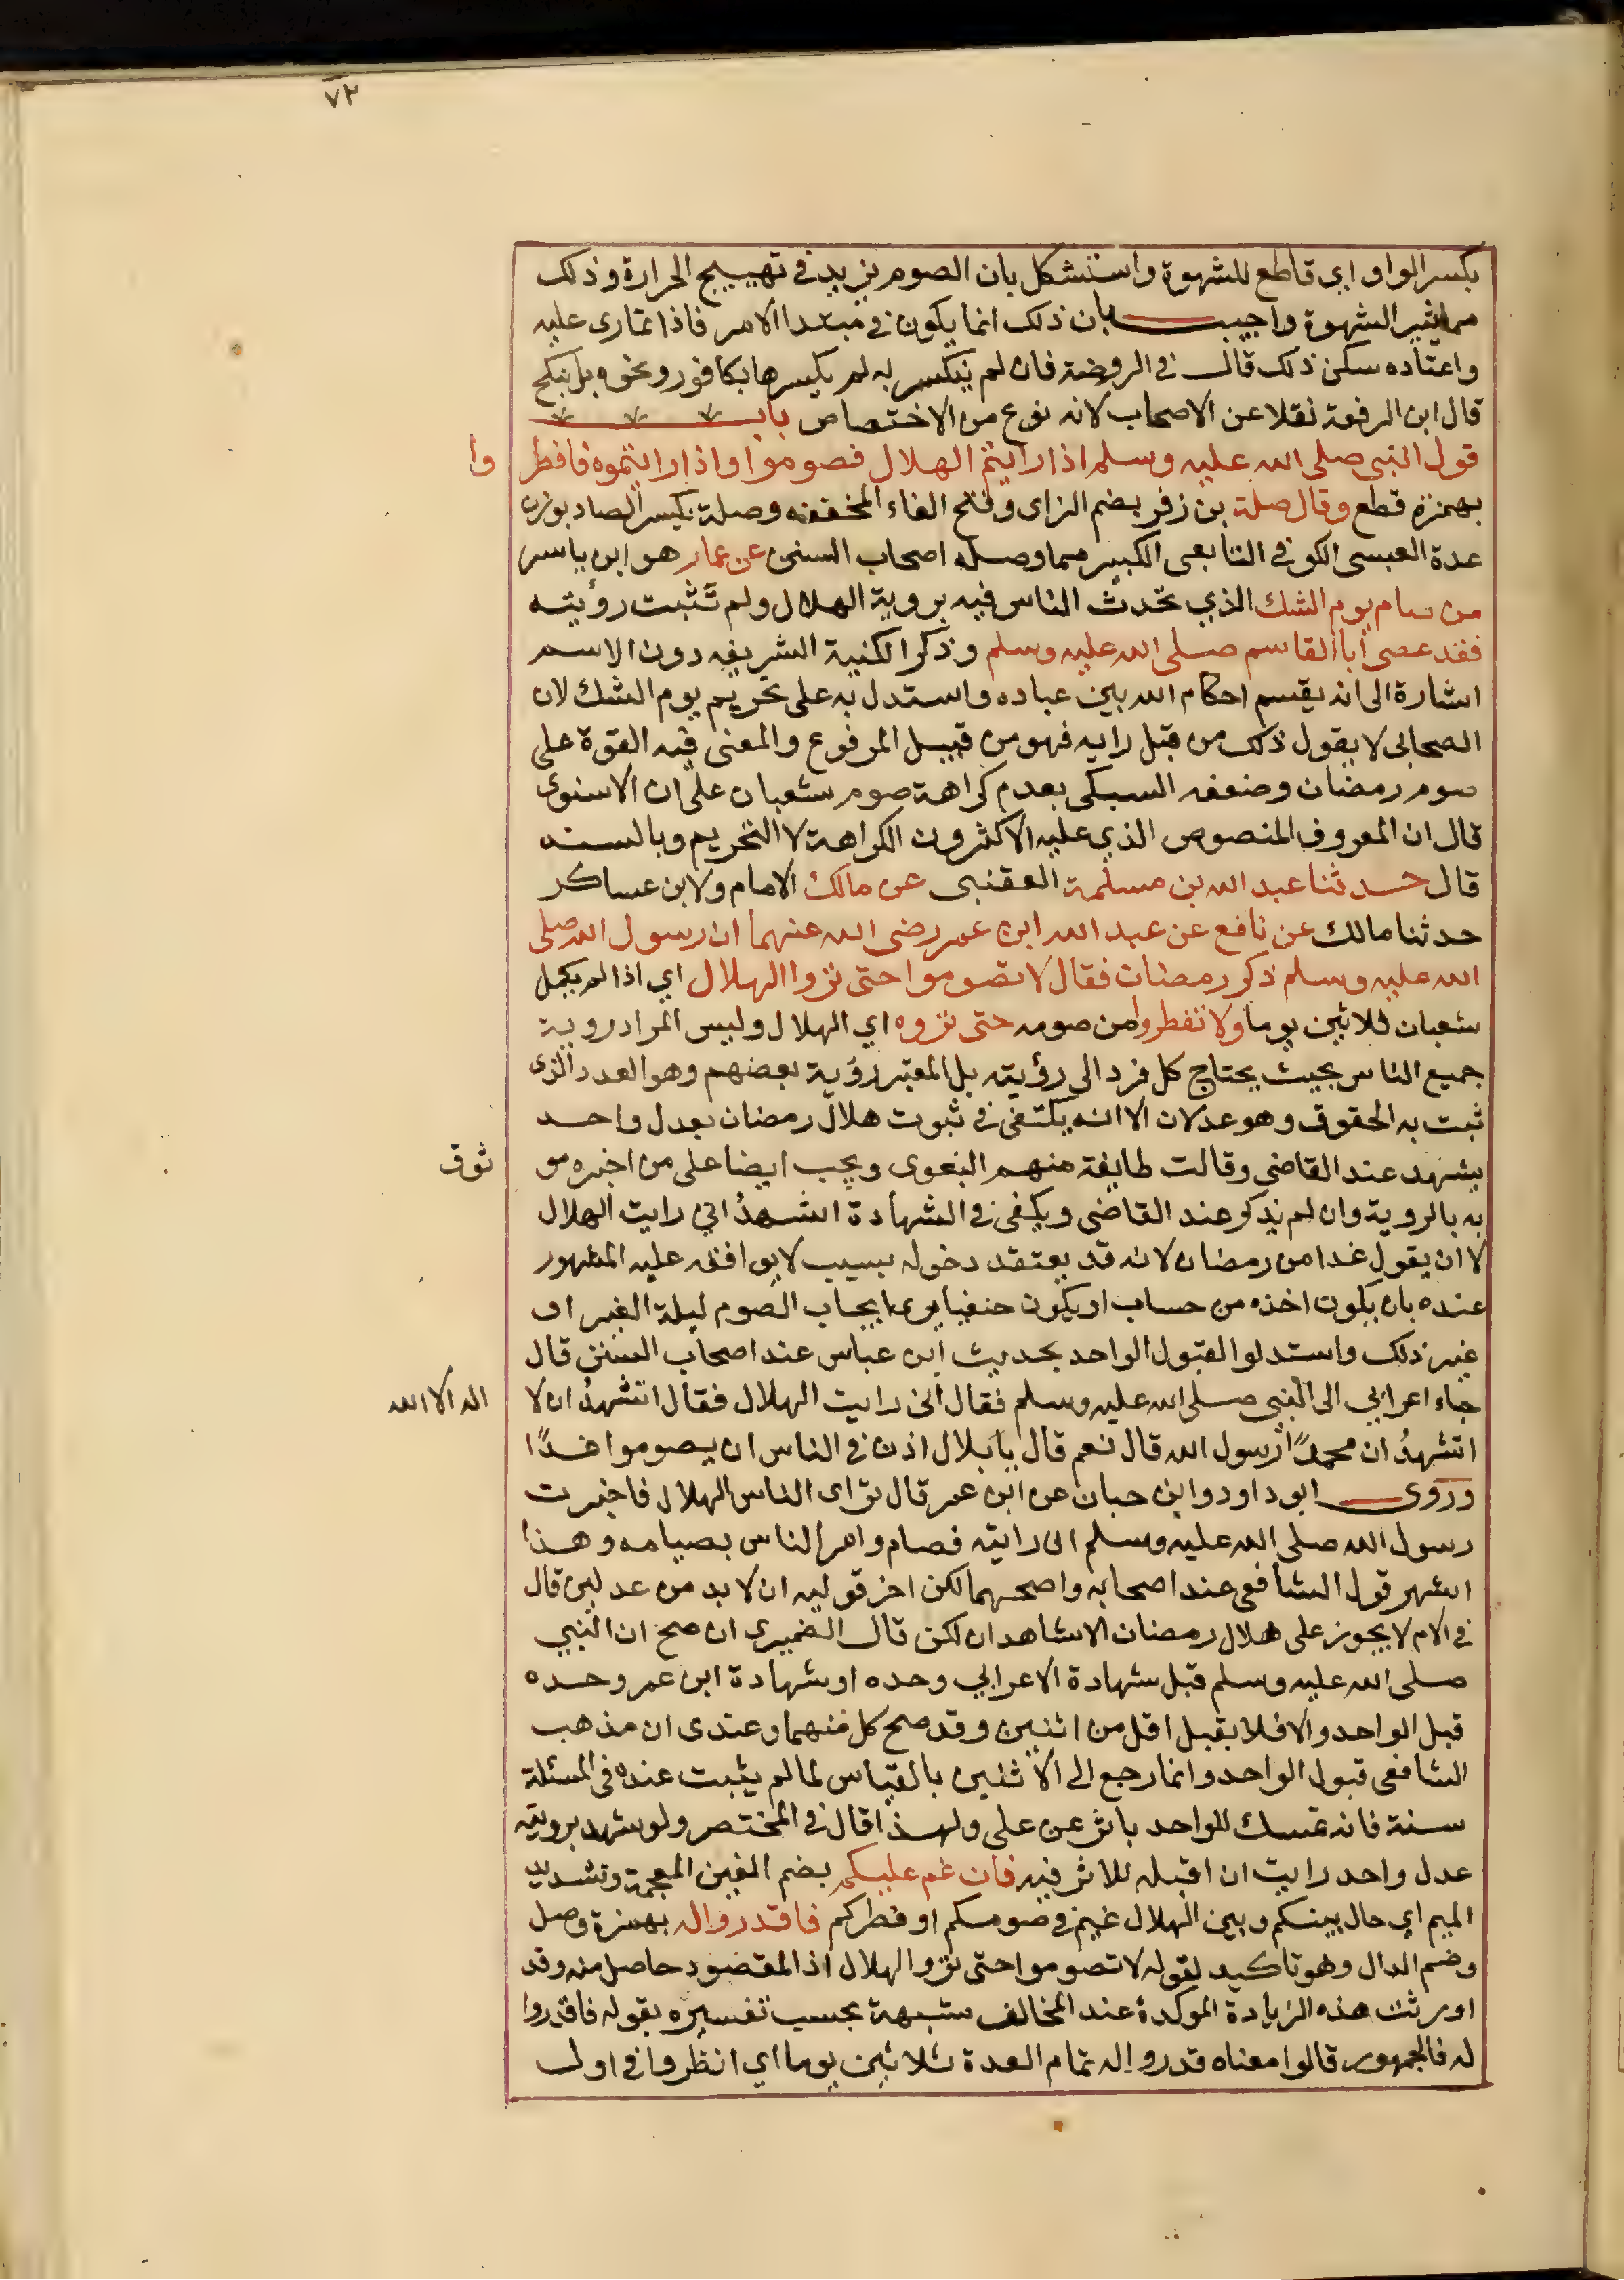 ٧٢
بكسر الواو اي قاطع للشهوة واستشكل بان الصوم يزيد في تهييج الحرارة وذلك
مما يثير الشهوة واجيب بان ذلك انما يكون في مبتدا الامر فاذا تمادى عليه
واعتاده سكن ذلك قال في الروضة فان لم ينكسر به لم يكسرها بكافور ونحوه بل ينكح
قال ابن الرفعة نقلا عن الاصحاب لانه نوع من الاختصاص باب
قول النبي صلى الله عليه وسلم اذا رايتم الهلال فصوموا واذا رايتموه فافطر وا
بهمزة قطع وقال صلة بن زفر بضم الزاى وفتح الفاء المخففه وصلة بكسر الصاد بوزن
عدة العبسى الكوفي التابعى الكبير مما وصله اصحاب السنن عن عمار هو ابن ياسر
من صام يوم الشك الذي تحدث الناس فيه بروية الهلال ولم تثبت رؤيته
فقد عصى ابا القاسم صلى الله عليه وسلم وذكر الكنية الشريفه دون الاسم
اشارة الى انه يقسم احكام الله بين عباده واستدل به على تحريم يوم الشك لان
الصحابى لا يقول ذلك من قبل رايه فهو من قبيل المرفوع والمعنى فيه القوة على
صوم رمضان وضعفه السبكى بعدم كراهة صوم شعبان على ان الاسنوى
قال ان المعروف المنصوص الذي عليه الاكثرون الكراهة لا التحريم وبالسند
قال حدثنا عبد الله بن مسلمة القعنبى عن مالك الامام ولابن عساكر
حدثنا مالك عن نافع عن عبد الله ابن عمر رضى الله عنهما ان رسول الله صلى
الله عليه وسلم ذكر رمضان فقال لا تصوموا حتى تروا الهلال اي اذا لم يكمل
شعبان ثلاثين يوما ولا تفطروا من صومه حتى تروه اي الهلال وليس المراد روية
جميع الناس بحيث يحتاج كل فرد الى رؤيته بل المعتبر رؤية بعضهم وهو العدد الذى
ثبت به الحقوق وهو عدلان الا انه يكتفى في ثبوت هلال رمضان بعدل واحد
يشهد عند القاضى وقالت طايفة منهم البغوى ويجب ايضا على من اخبره مو ثوق
به بالروية وان لم يذكر عند القاضى ويكفى في الشهادة اشهد انى رايت الهلال
لا ان يقول غدا من رمضان لانه قد يعتقد دخوله بسبب لا يوافقه عليه المشهور
عنده بان يكون اخذه من حساب او يكون حنفيا يرى ايجاب الصوم ليلة الغيم او
غير ذلك واستدلوا لقبول الواحد بحديث ابن عباس عند اصحاب السنن قال
جاء اعرابي الى النبي صلى الله عليه وسلم فقال انى رايت الهلال فقال اتشهد ان لا اله الا الله
اتشهد ان محمدا رسول الله قال نعم قال يا بلال اذن في الناس ان يصوموا غدًا
وروى ابو داود وابن حبان عن ابن عمر قال تراى الناس الهلال فاخبرت
رسول الله صلى الله عليه وسلم انى رايته فصام وامر الناس بصيامه وهذا
اشهر قول الشافعى عند اصحابه واصحهما لكن اخر قوليه ان لا بد من عدلين قال
في الام لا يجوز على هلال رمضان الا شاهدان لكن قال الضميرى ان صح ان النبي
صلى الله عليه وسلم قبل شهادة الاعرابي وحده او شهادة ابن عمر وحده
قبل الواحد والا فلا يقبل اقل من اثنين وقد صح كل منهما وعندى ان مذهب
الشافعى قبول الواحد وانما رجع الى الاثنين بالقياس لما لم يثبت عنده في المسئلة
سنة فانه تمسك للواحد باثر عن على ولهذا قال في المختصر ولو شهد برويته
عدل واحد رايت ان اقبله للاثر فيه فان غم عليكم بضم الغين المعجمة وتشديد
الميم اي حال بينكم وبين الهلال غيم في صومكم او فطركم فاقدروا له بهمزة وصل
وضم الدال وهو تاكيد لقوله لا تصوموا حتى تروا الهلال اذ المقصود حاصل منه وقد
اورثت هذه الزيادة الموكدة عند المخالف شبهة بحسب تفسيره بقوله فاقدروا
له فالجمهور قالوا معناه قدروا له تمام العدة ثلاثين يوما اي انظروا في اول